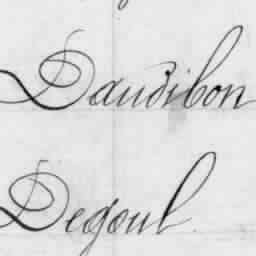 Daudibon
Degoul